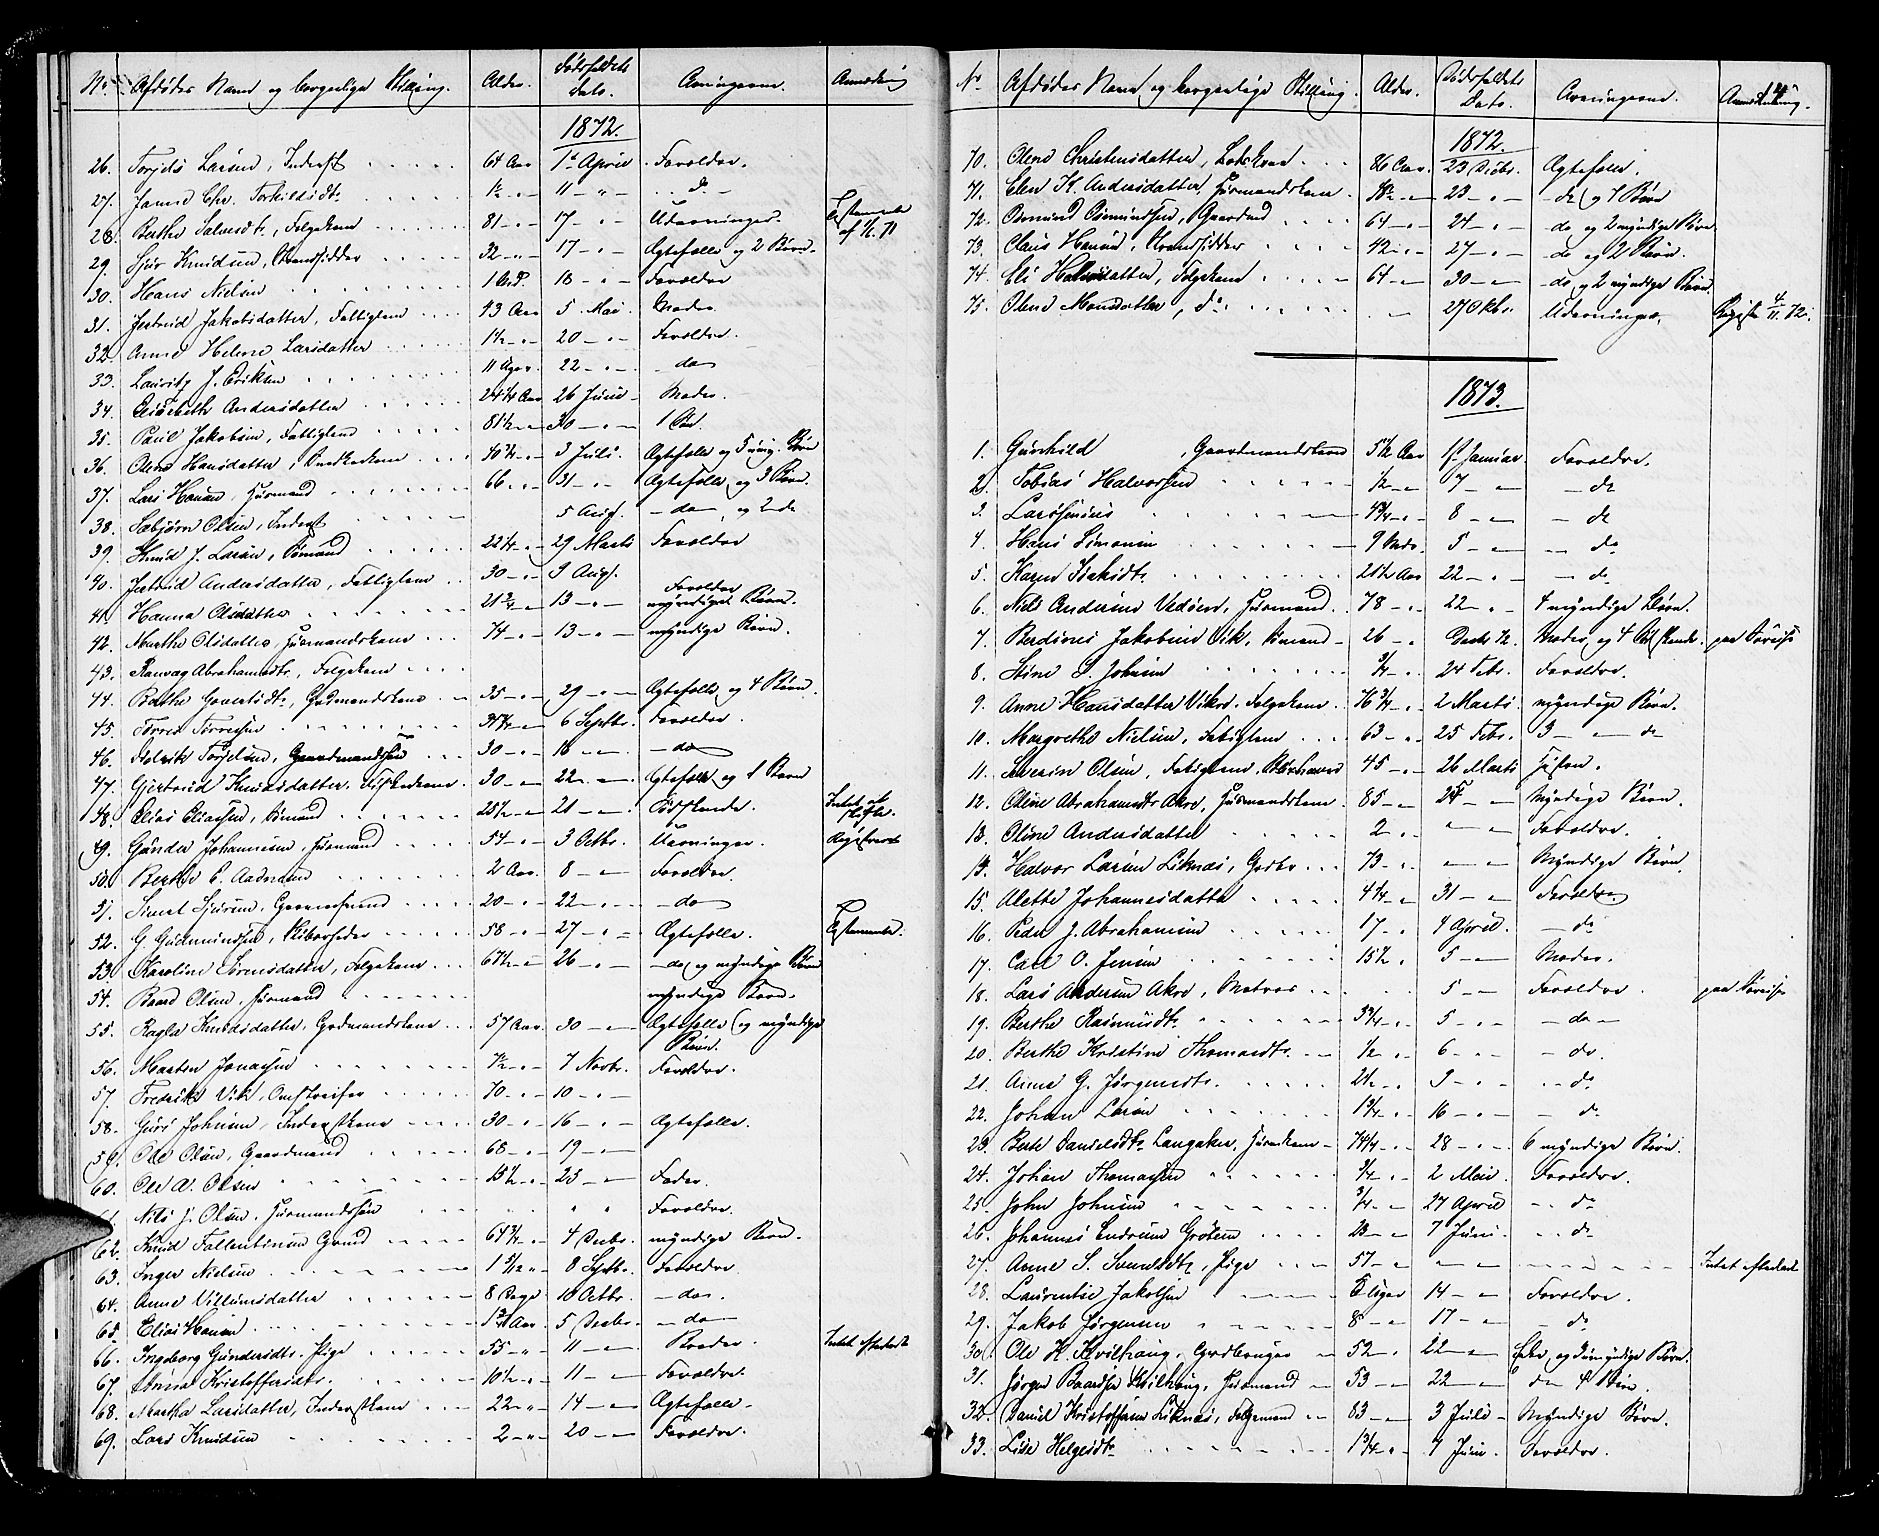 No. Afdødes Navn og borgerlige Stilling. Alder. Dødsfaldets Dato. Arvingerne. Anmærkning
1872.
26. Torjels Larsen, Inderst 64 Aar 1e April Forældre.
27. Janne Chr. Torkildsdtr. 1½ - 11 - do
28. Berthe Salvesdtr., Følgekone 81 - 17 - Udarvinger. Testamente af
29. Sjur Knudsen, Strandsidder 32 - 17 - Ægtefælle og 2 Børn.
30. Hans Nielsen 18 - Forældre
31. Jertrud Jakobsdatter, Fattiglem 43 Aar 5 Mai Moder.
32. Anne Helene Larsdatter 1½ - 20 - Forældre.
33. Lauritz J. Eriksen 11 Uger 22 - do
34. Elisabeth Andersdatter 24¼ Aar 26 Juni Moder.
35. Paul Jakobsen, Fattiglem 81½ - 30 - 1 Søn.
36. Olene Hansdatter, 40¾ - 3 Juli. Ægtefælle og 5 umy. Børn
37. Lars Hansen, Husmand 66 - 31 - Ægtefælle og 3 Børn.
38. Asbjørn Olsen, Inderst 5 Aug. - do og 2 do
39. Knud J. Larsen, Sømand 22¼ - 29 Marts Forældre
40. Jertrud Andersdatter, Fattiglem 30 - 9 Aug.
41. Hanna Olsdatter 21¾ - 13 - Forældre
42. Marthe Olsdatter, Husmandskone 74 - 13 - myndige Børn.
43. Ranvag Abrahamsdtr., Følgekone myndige Børn.
44. Berthe Govertsdtr., Grdmandskone 35 - 29 - Ægtefælle og 4 Børn.
45. Torres Torresen 6 Septbr. Forældre.
46. Torjelsen, Gaardmandssøn 30 - 10 - do
47. Gjertrud Knudsdatter, Fiskerkone 30 - 22 - Ægtefælle og 1 Barn
48. Elias Eliassen, Sømand 25½ - 21 - Sødskende. Intet at skifte.
49. Gunder Johannesen, Husmand 54 - 3 Octbr. Udarvinger. Registreret
50. Berthe C. Aadnesen 2 Aar. 8 - Forældre.
51. Sivert Sjursen, 20 - 22 - do
52. G. Gudmundsen, 58 - 27 - Ægtefælle. Testamente.
53. Karoline Sørensdatter, Følgekone 67½ - 26 - do og myndige Børn
54. Baard Olsen, Husmand myndige Børn.
55. Ragla Knudsdatter, Grdmandskone 57 Aar 30 - Ægtefælle (og myndige Børn.
56. Marten Jonassen 7½ - 7 Novbr. Forældre.
57. Fredrik Vik, Omstreifer 70 - 10 -
58. Guri Johnsen, Inderstkone 30 - 16 - Ægtefælle.
59. Ole Olsen, Gaardmand 68 - 19 -
60. Ole A. Olsen 15½ - 25 - Fader.
61. Nils J. Olsen, Husmandssøn Forældre.
62. Knud Fallentinsen Grund 64¾ - 4 Decbr. myndige Børn.
63. Inger Nielsen 1 5/12 - 8 Septbr. Forældre.
64. Anne Villumsdatter 8 Dage 10 Octbr. - do.
65. Elias Hansen 5 Decbr. - do
66. Ingeborg Gundersdtr., Pige 55 - 11 - Broder Intet efterladt
67. Kristoffersdtr. 10½ - 11 - Forældre.
68. Martha Larsdatter, Inderstkone 22 - 14 - Ægtefælle.
69. Lars Knudsen 2 - 20 - Forældre.
No Afdødes Navn og borgerlige Stilling. Alder. Dødsfaldets Dato. Arvingerne. Anmærkning.
1872.
70. Olene Christensdatter, Lodskone 86 Aar 23 Decbr. Ægtefælle.
71. Elen K. Andersdatter, Husmandskone 23 - do og 1 Barn
72. Osmund Osmundsen, Gaardmd 64 - 24 - do og 2 myndige Børn.
73. Claus Hansen, Strandsidder 42 - 27 - do og 2 Børn.
74. Eli Halvorsdatter, Følgekone 64 - 30 - do og 2 myndige Børn.
75. Olene Monsdatter, do. - 27 Okbr. Udarvinger. Registr 4/11 72.
1873.
1. Gunhild , Gaardmandskone 1ste Januar Forældre.
2. Tobias Halvorsen ½ - 7 - do
3. Larssenius 4¾ - 8 - do
4. Hans Simonsen 9 Mdr. 5 - do
5. Karen Isaksdtr. 21½ Aar 22 - do
6. Niels Andersen Vedøen, Husmand. 78 - 22 - 4 myndige Børn.
7. Berdines Jakobsen Vik, Sømand 26 - Moder, og 4 Sødskende. paa Søreise
8. Stine S. Johnsen ¾ - 24 Febr. Forældre.
9. Anne Hansdatter Vikre, Følgekone 76¾ - 2 Marts myndige Børn.
10. Margrethe Nielsen, Fatiglem 63 - 25 Febr. 3 - do
11. Severin Olsen, Fatiglem, 45 - 26 Marts Søsken.
12. Oline Abrahamsdtr. Akre, Husmandskone 85 - Myndige Børn.
13. Oline Andersdatter 2 - Forældre.
14. Halvor Larsen Liknæs, Grdbr. 73 - Myndige Børn.
15. Alette Johannesdatter 4¼ - 31 - Forældre
16. Peder J. Abrahamsen 17 - 4 April - do
17. Carl O. Jensen 15½ 5 - Moder.
18. Lars Andersen Akre, Matros 5 - Forældre. paa Søreise
19. Berthe Rasmusdtr. 3¾ - 5 - do -
20. Berthe Kristine Thomasdtr. ½ - 6 - do.
21. Anne G. Jørgensdtr. 2½ - 9 - do
22. Johan Larsen 1¾ - 16 - do
23. Berte Danielsdtr. Langaker, Husmkone 74¼ - 28 - 6 myndige Børn.
24. Johan Thomassen ¾ - 2 Mai Forældre.
25. John Johnsen ¾ - 27 April - do
26. Johannes Endresen Grøtem 23 - 7 Juni - do
27. Anne S. Svendsdtr., Pige 57 - Intet efterladt
28. Laurentse Jakobsen 5 Uger 14 - Forældre.
29. Jakob Jørgensen 8 - 17 - do
30. Ole H. Kvilhaug, Grdbruger 52 - 22 - Enke og 3 umyndige Børn.
31. Jørgen Baardsen Kvilhaug, Husmand 53 - 22 - do 4 Børn.
32. Daniel Kristoffersen Liknæs, Følgemand 83 - 3 Juli Myndige Børn.
33. Lise Helgesdtr. 1¾ - 7 Juni Forældre.